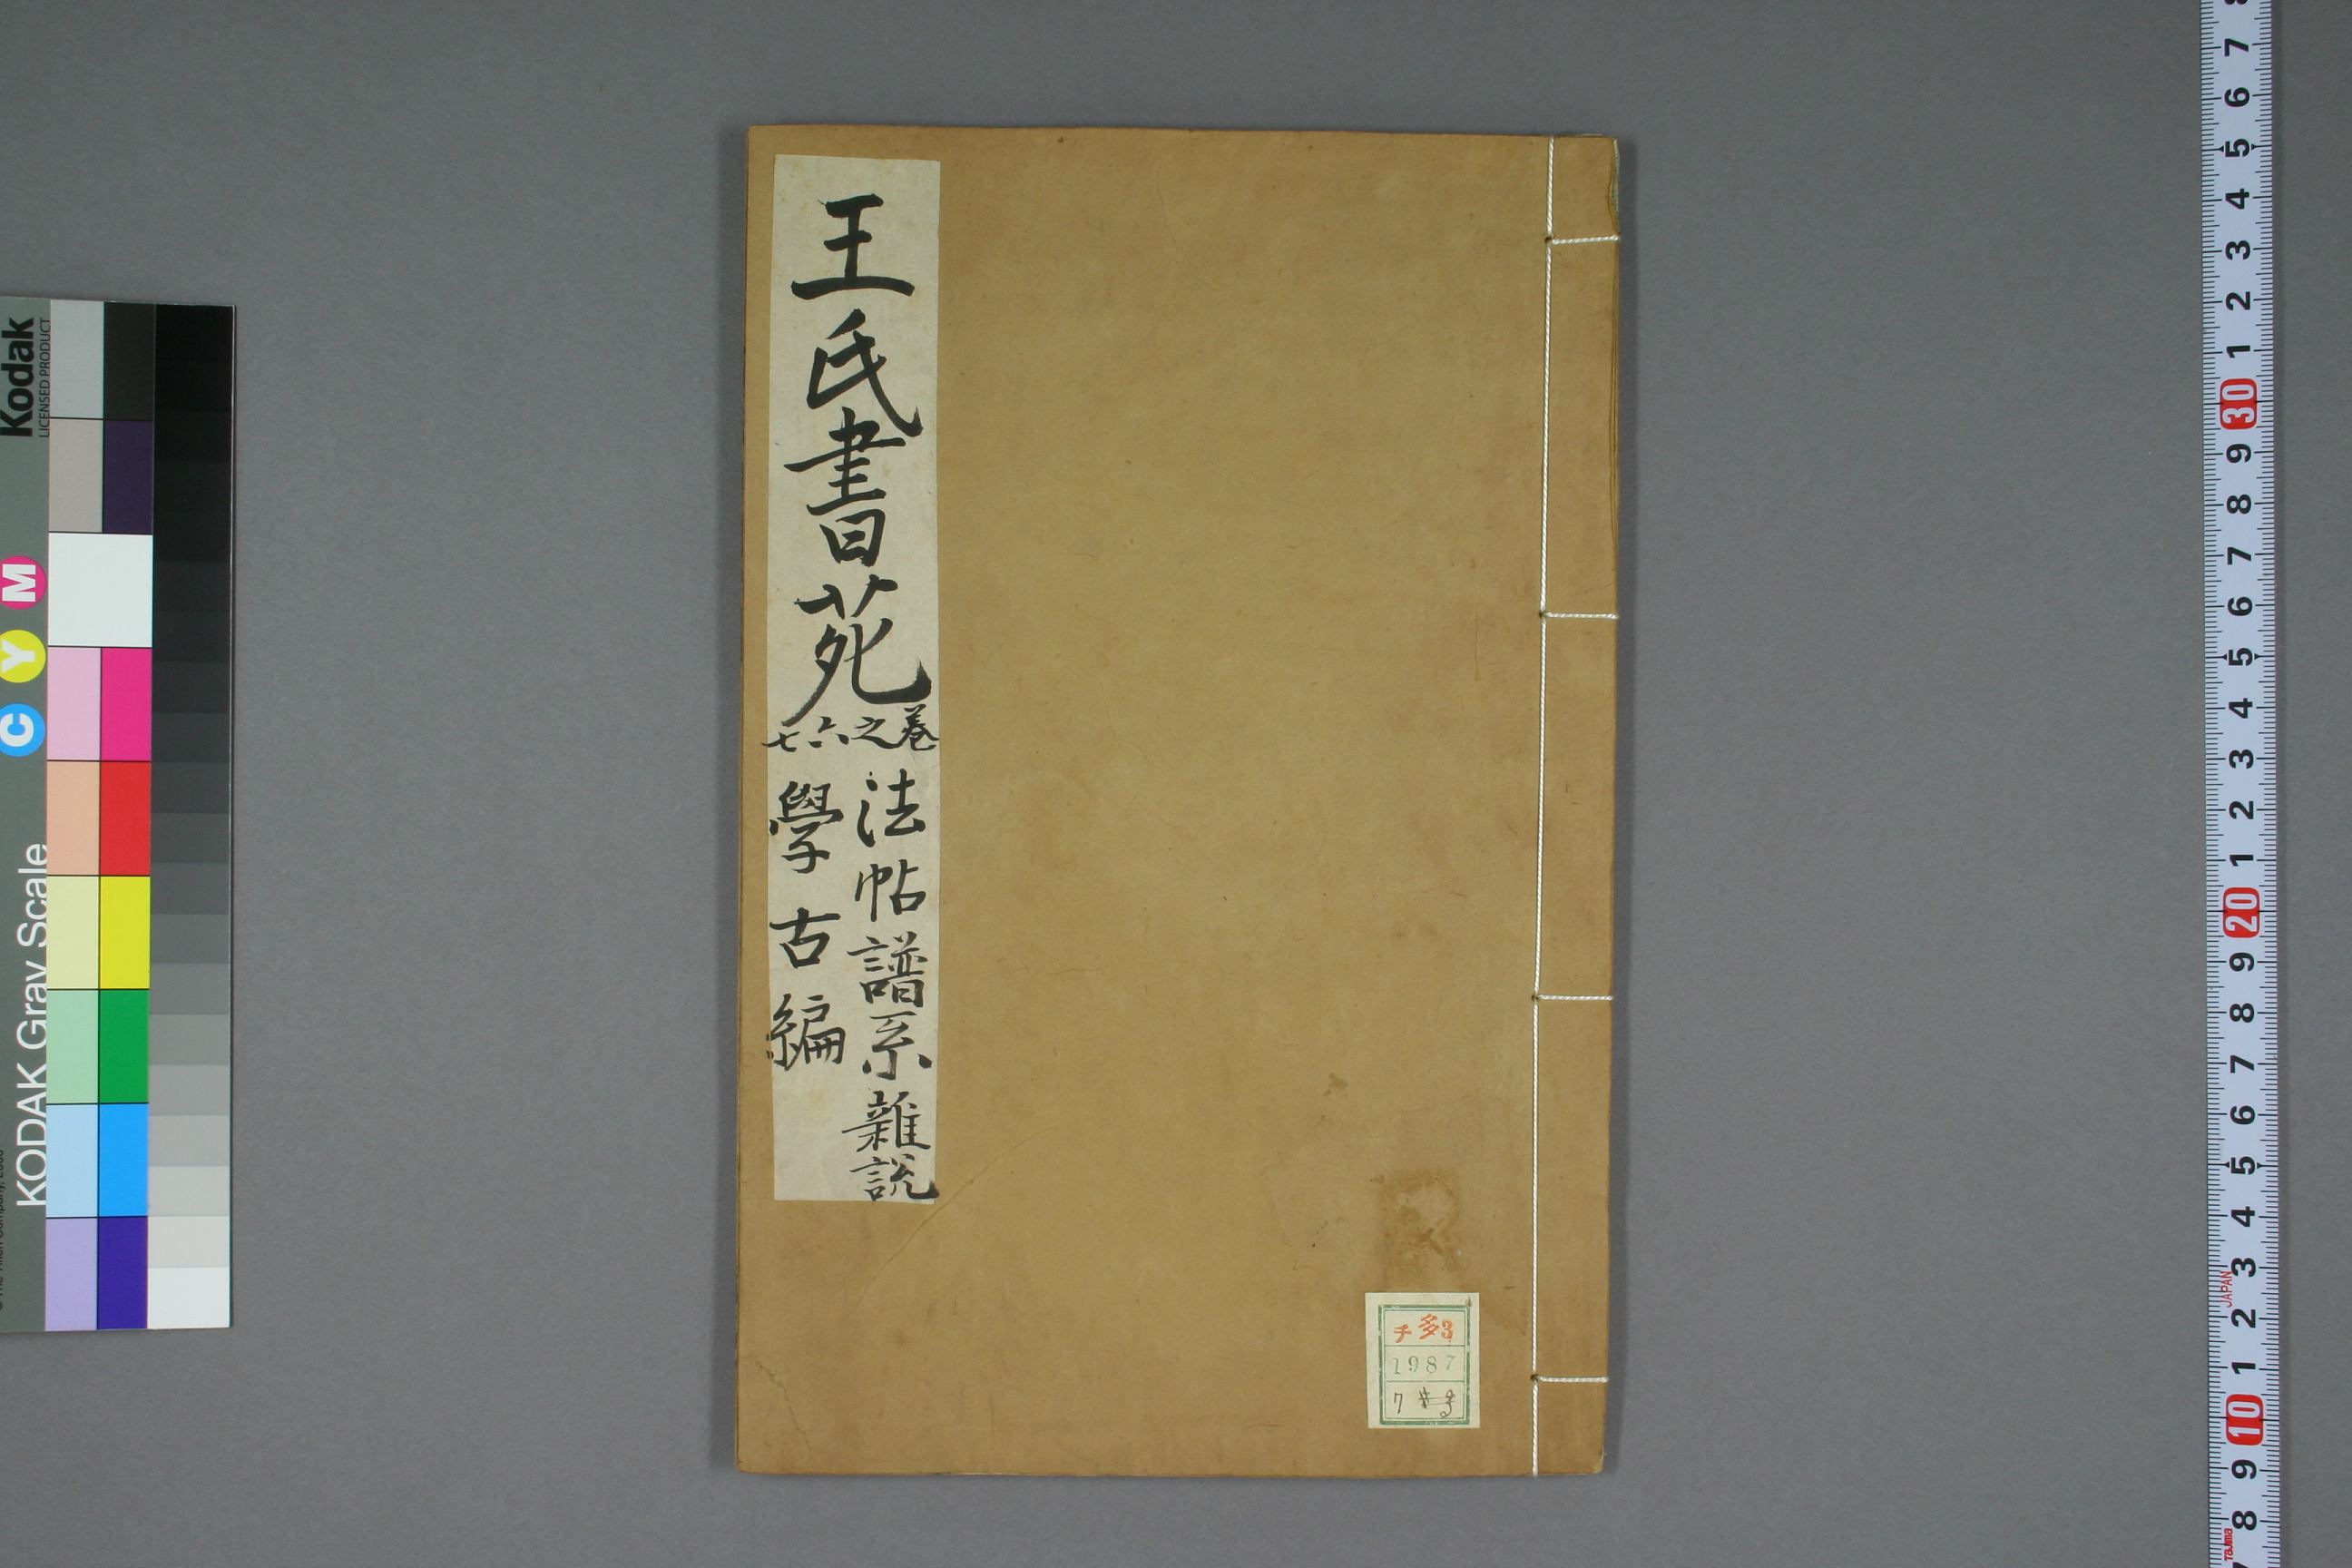 王氏書苑
卷之六七
法帖譜系雜說
學古編
チ多3
1987
7
Kodak
LICENSED PRODUCT
C Y M
KODAK Gray Scale
8 7 6 5 4 3 2 1 30 9 8 7 6 5 4 3 2 1 20 9 8 7 6 5 4 3 2 1 10 9 8
JAPAN
Tajima